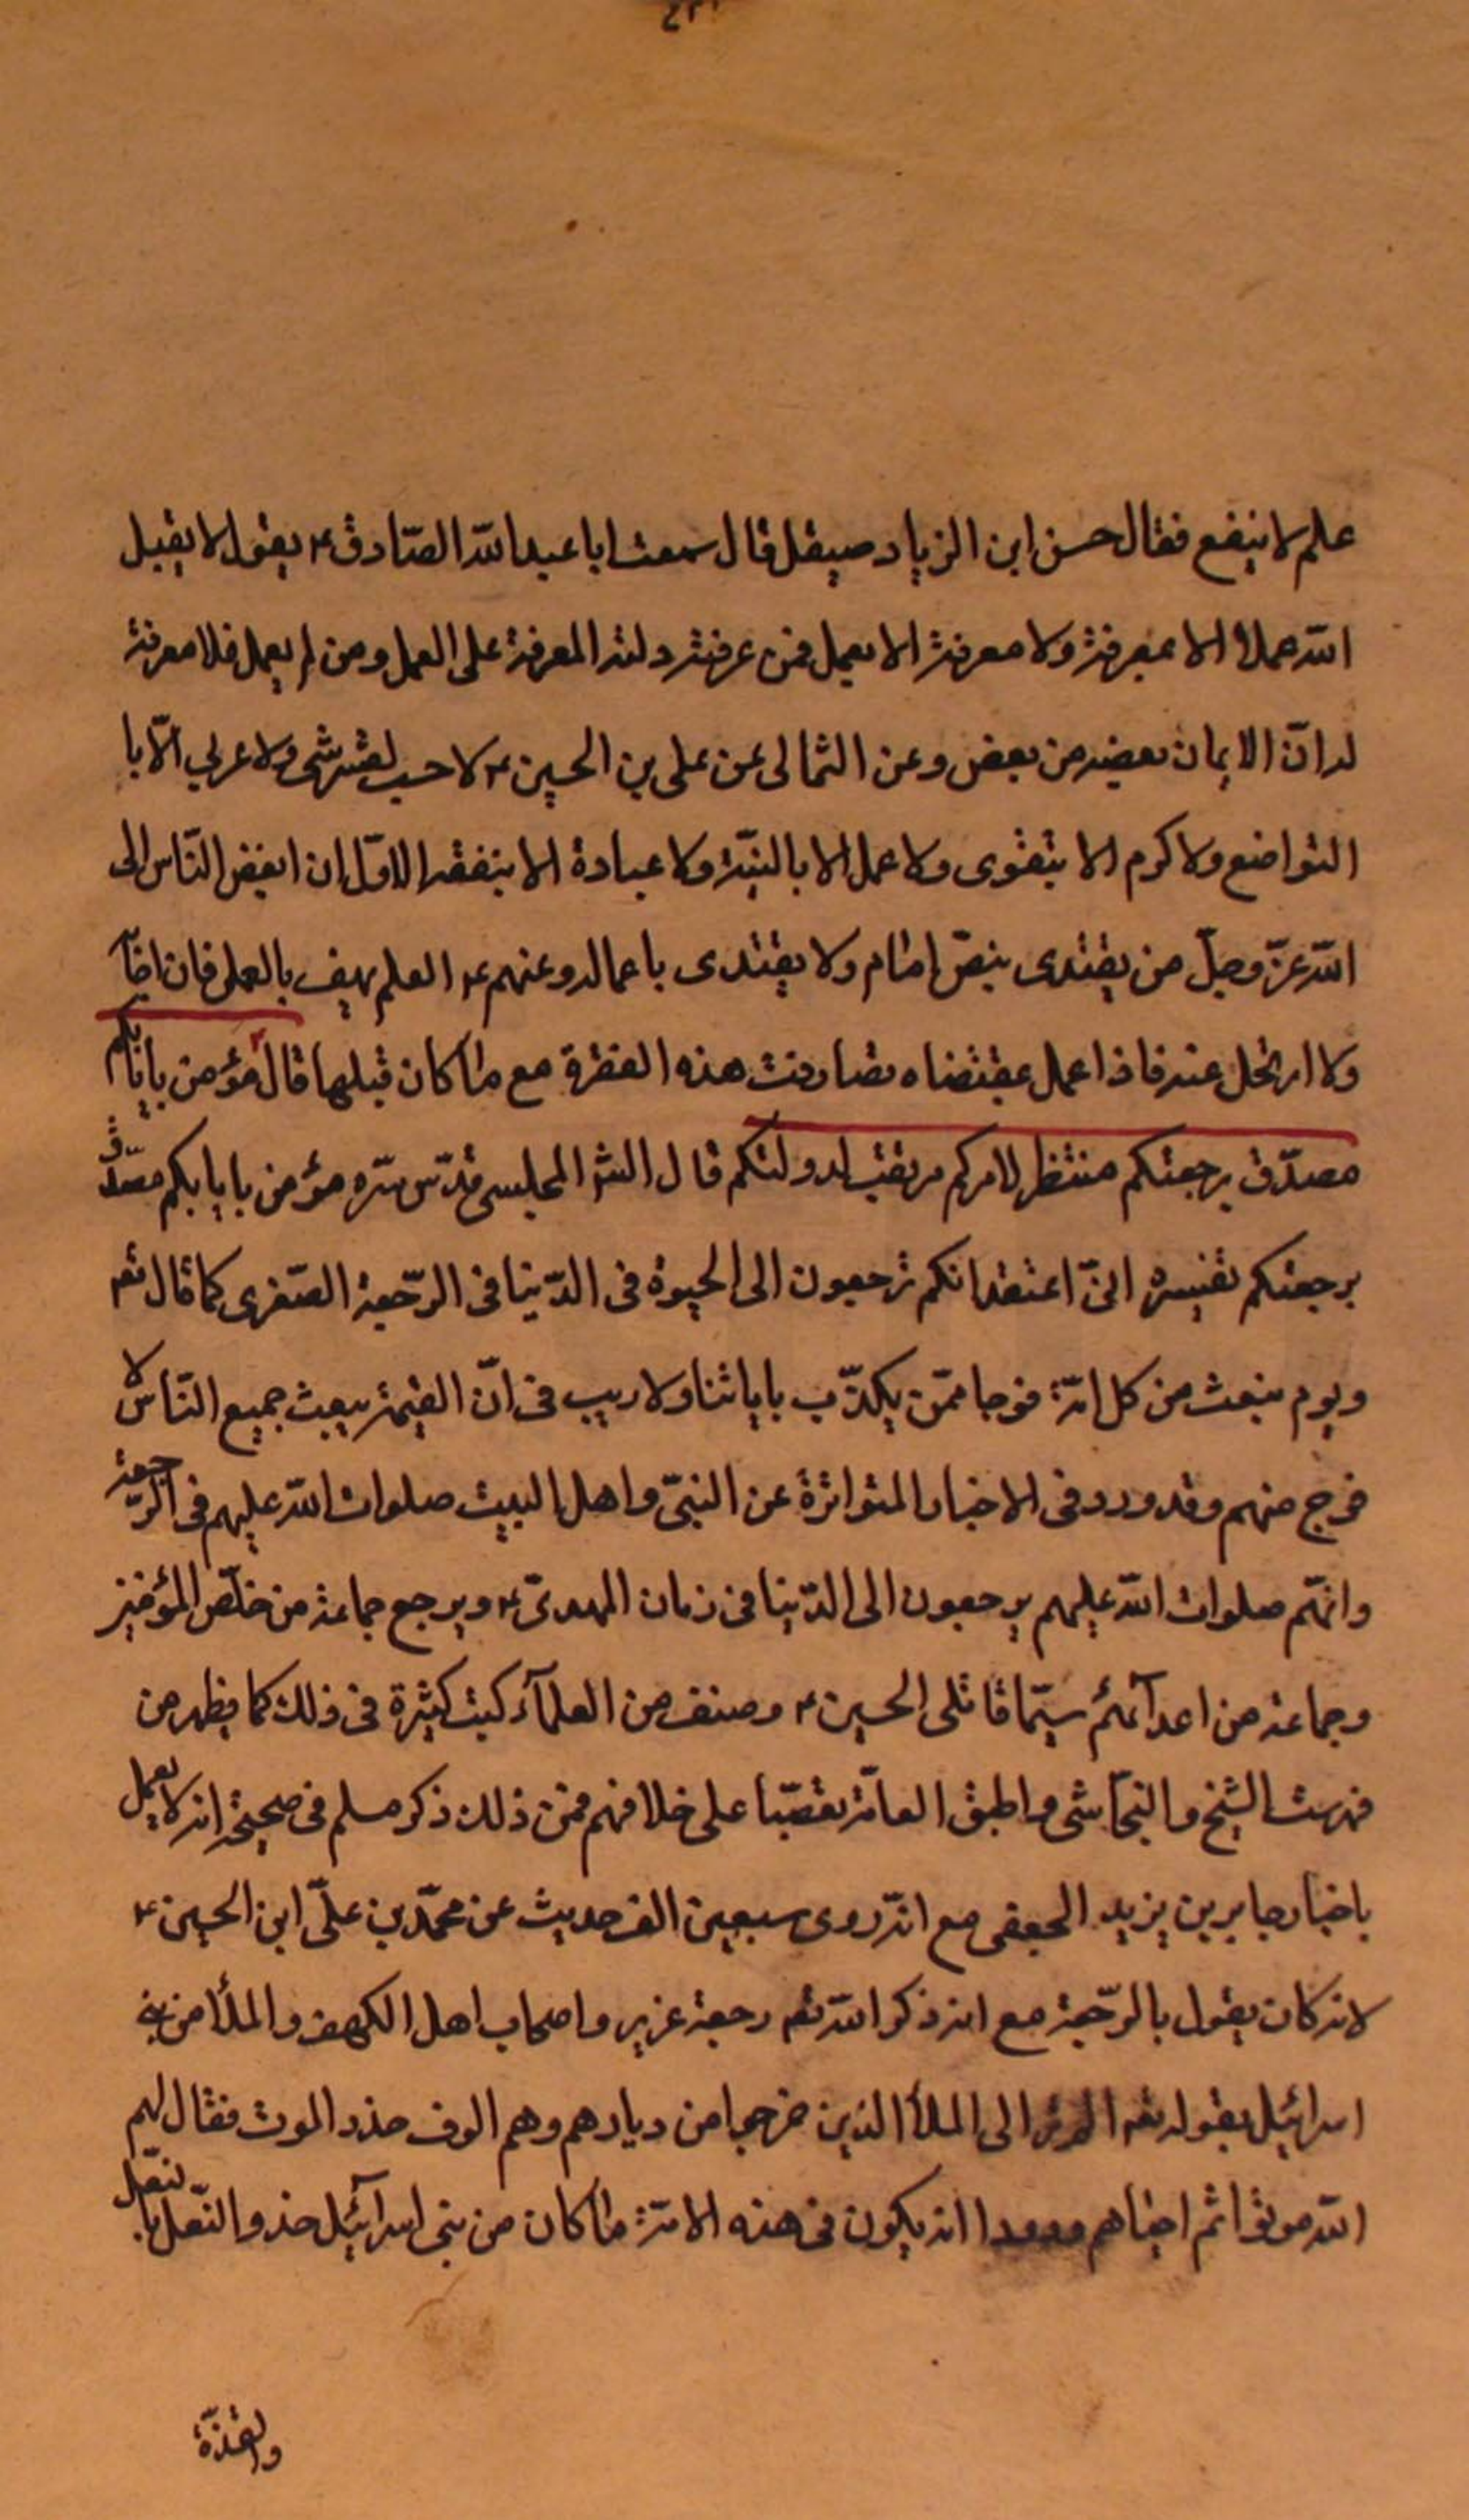 علم لا ينفع فقال حسن ابن الزياد صيقل قال سمعت ابا عبد الله الصّادق ع يقول لا يقبل
الله عملا الا بمعرفة ولا معرفة الا بعمل فمن عرفته دلته المعرفة على العمل ومن لم يعمل فلا معرفة
له انّ الايمان بعضه من بعض وعن الثمالى عن على بن الحسين ع لا حسب لقرشى ولا عربي الّا با
التواضع ولا كرم الا بتقوى ولا عمل الا بالنيّة ولا عبادة الا بتفقه الا وان ابغض النّاس الى
الله عزّ وجلّ من يقتدى بنصّ امام ولا يقتدى باعماله وعنهم ع العلم يهتف بالعمل فان اجابه
ولا ارتحل عنه فاذا اعمل بمقتضاه تصادفت هذه الفقرة مع ما كان قبلها قال مؤمن بايابكم
مصدّق برجعتكم منتظر لامركم مرتقب لدولتكم قال المجلسى قدّس سرّه مؤمن بايابكم مصدّق
برجعتكم تفسيره انىّ اعتقد انكم ترجعون الى الحيوة فى الدّنيا فى الرّجعة الصّغرى كما قال تعم
ويوم نبعث من كل امّة فوجا ممّن يكذّب باياتنا ولا ريب فى انّ القيمة يبعث جميع النّاس لا
فوج منهم وقد ورد فى الاخبار المتواترة عن النبىّ واهل البيت صلوات الله عليهم فى الرّجعة
وانهّم صلوات الله عليهم يرجعون الى الدّنيا فى زمان المهدىّ ع ويرجع جماعة من خلّص المؤمنين
وجماعة من اعدآئهم سيّما قاتلى الحسين ع وصنف من العلمآء كتب كثيرة فى ذلك كما يظهر من
فهرست الشيخ والنجّاشى واطبق العامّة تعصّبا على خلافهم فمن ذلك ذكر مسلم فى صحيحه انه لا يعمل
باخبار جابر بن يزيد الجعفى مع انّه روى سبعين الف حديث عن محمّد بن علىّ ابن الحسين ع
لانه كان يقول بالرّجعة مع انه ذكر الله تعم رجعة عزير واصحاب اهل الكهف والملأ من بنى
اسرائيل بقوله تعم الم تر الى الملأ الذين خرجوا من ديارهم وهم الوف حذر الموت فقال لهم
الله موتوا ثم احياهم انه يكون فى هذه الامّة ما كان من بنى اسرآئيل حذو النّعل بالنّعل
والقذّة